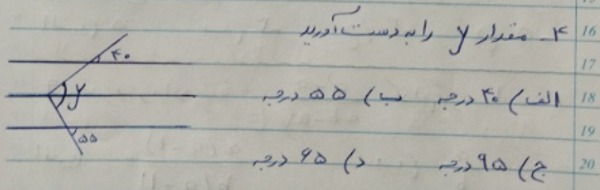 ۴- مقدار y را به دست آورید
الف) ۴۰ درجه ب) ۵۵ درجه
ج) ۹۵ درجه د) ۶۵ درجه
۴۰
y
۵۵
16
17
18
19
20